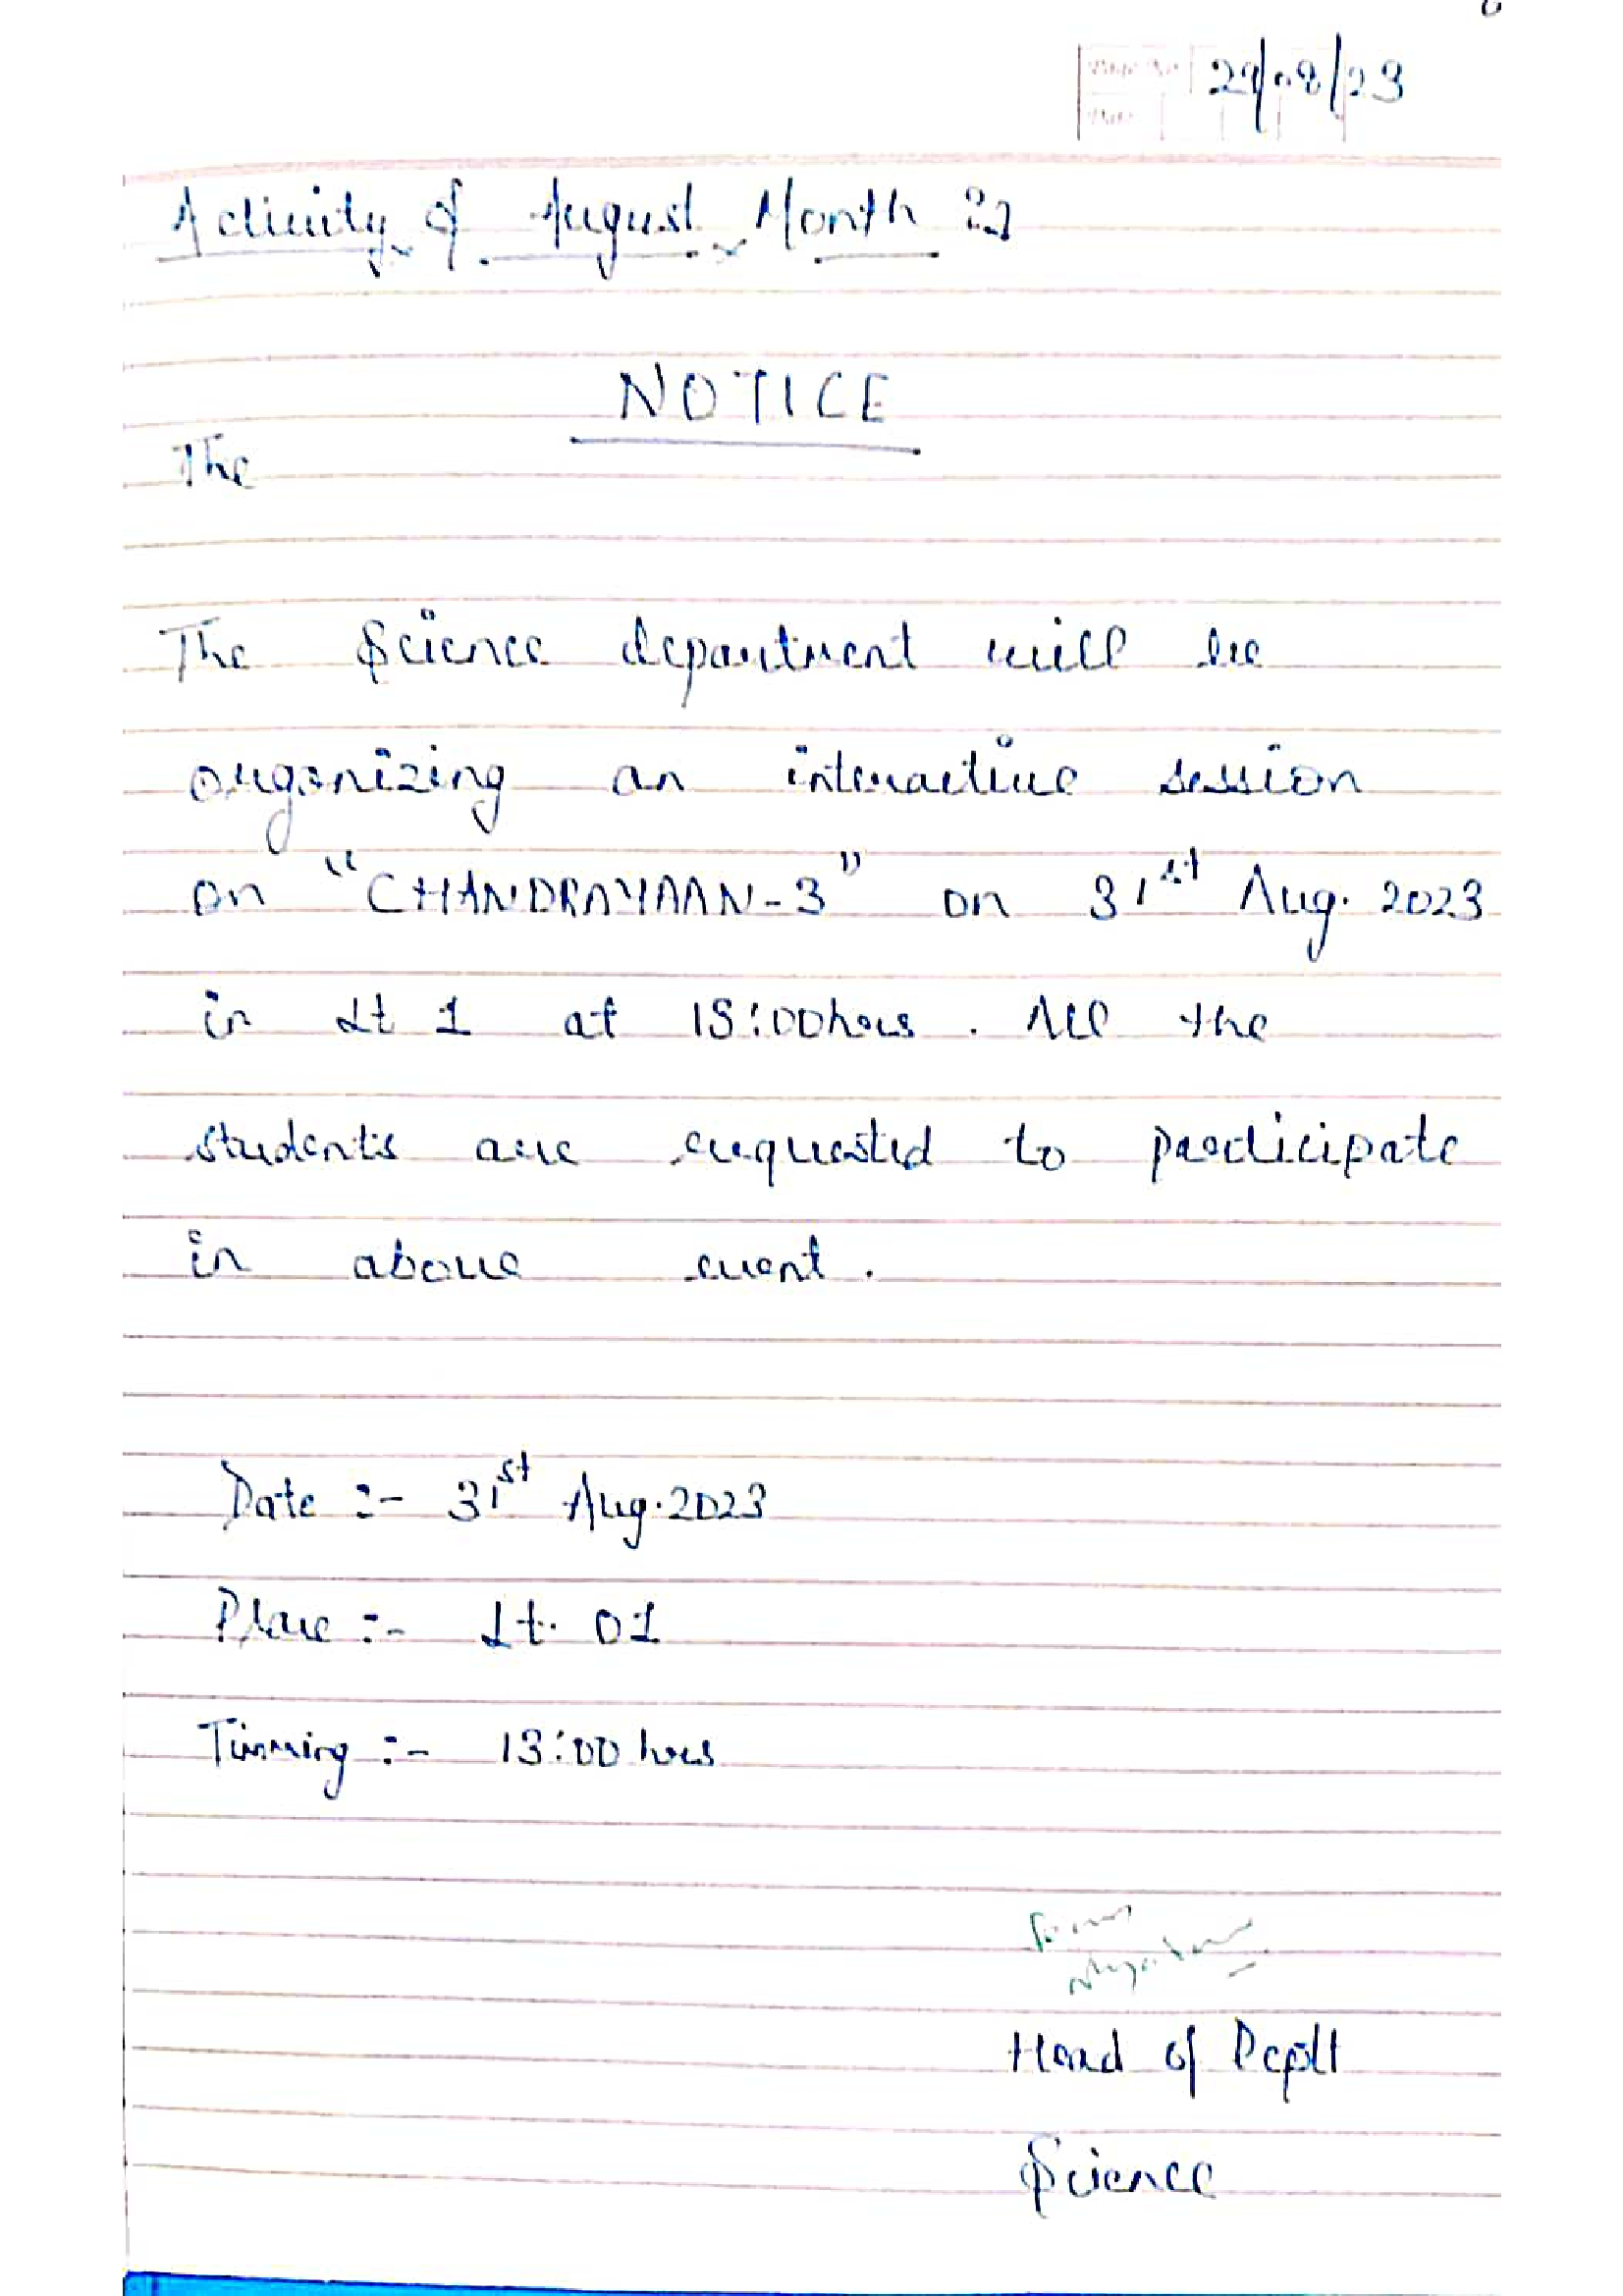 29/08/23
Activity of August Month :-
NOTICE
The
The Science department will be
organizing an interactive session
on "CHANDRAYAAN-3" on 31st Aug. 2023
in Lt 1 at 13:00hrs. All the
students are requested to participate
in above event.
Date :- 31st Aug. 2023
Place :- Lt. 01
Timming :- 13:00 hrs
Head of Deptt
Science